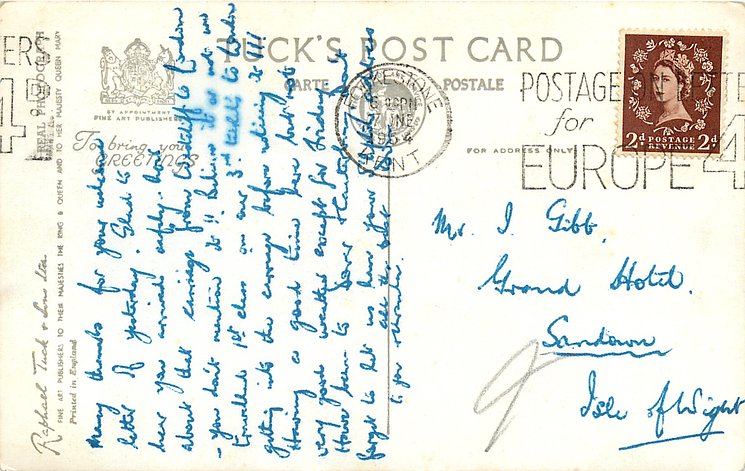 TUCK'S POST CARD
CARTE POSTALE
BY APPOINTMENT
FINE ART PUBLISHERS
To bring you
GREETINGS
REAL PHOTOGRAPH
FOR ADDRESS ONLY
FOLKESTONE
6 PM
JNE
195
KENT
ERS
4D
POSTAGE
for
EUROPE 4
2d POSTAGE REVENUE 2d
Raphael Tuck & Sons Ltd.
FINE ART PUBLISHERS TO THEIR MAJESTIES THE KING & QUEEN AND TO HER MAJESTY QUEEN MARY
Printed in England
Many thanks for your welcome
letter of yesterday. Glad to
hear you arrived safely. How
about that carriage from Cardiff to London
- you don't mention it!! Believe it or not we
travelled 1st class on our 3rd tickets to London
getting into the carriage before noticing it!!!
Having a good time here but not
very good weather except for Friday.
Have been to Dover & Canterbury. Don't
forget to let us have your address
Mr. I. Gibb.
Grand Hotel.
Sandown
Isle of Wight